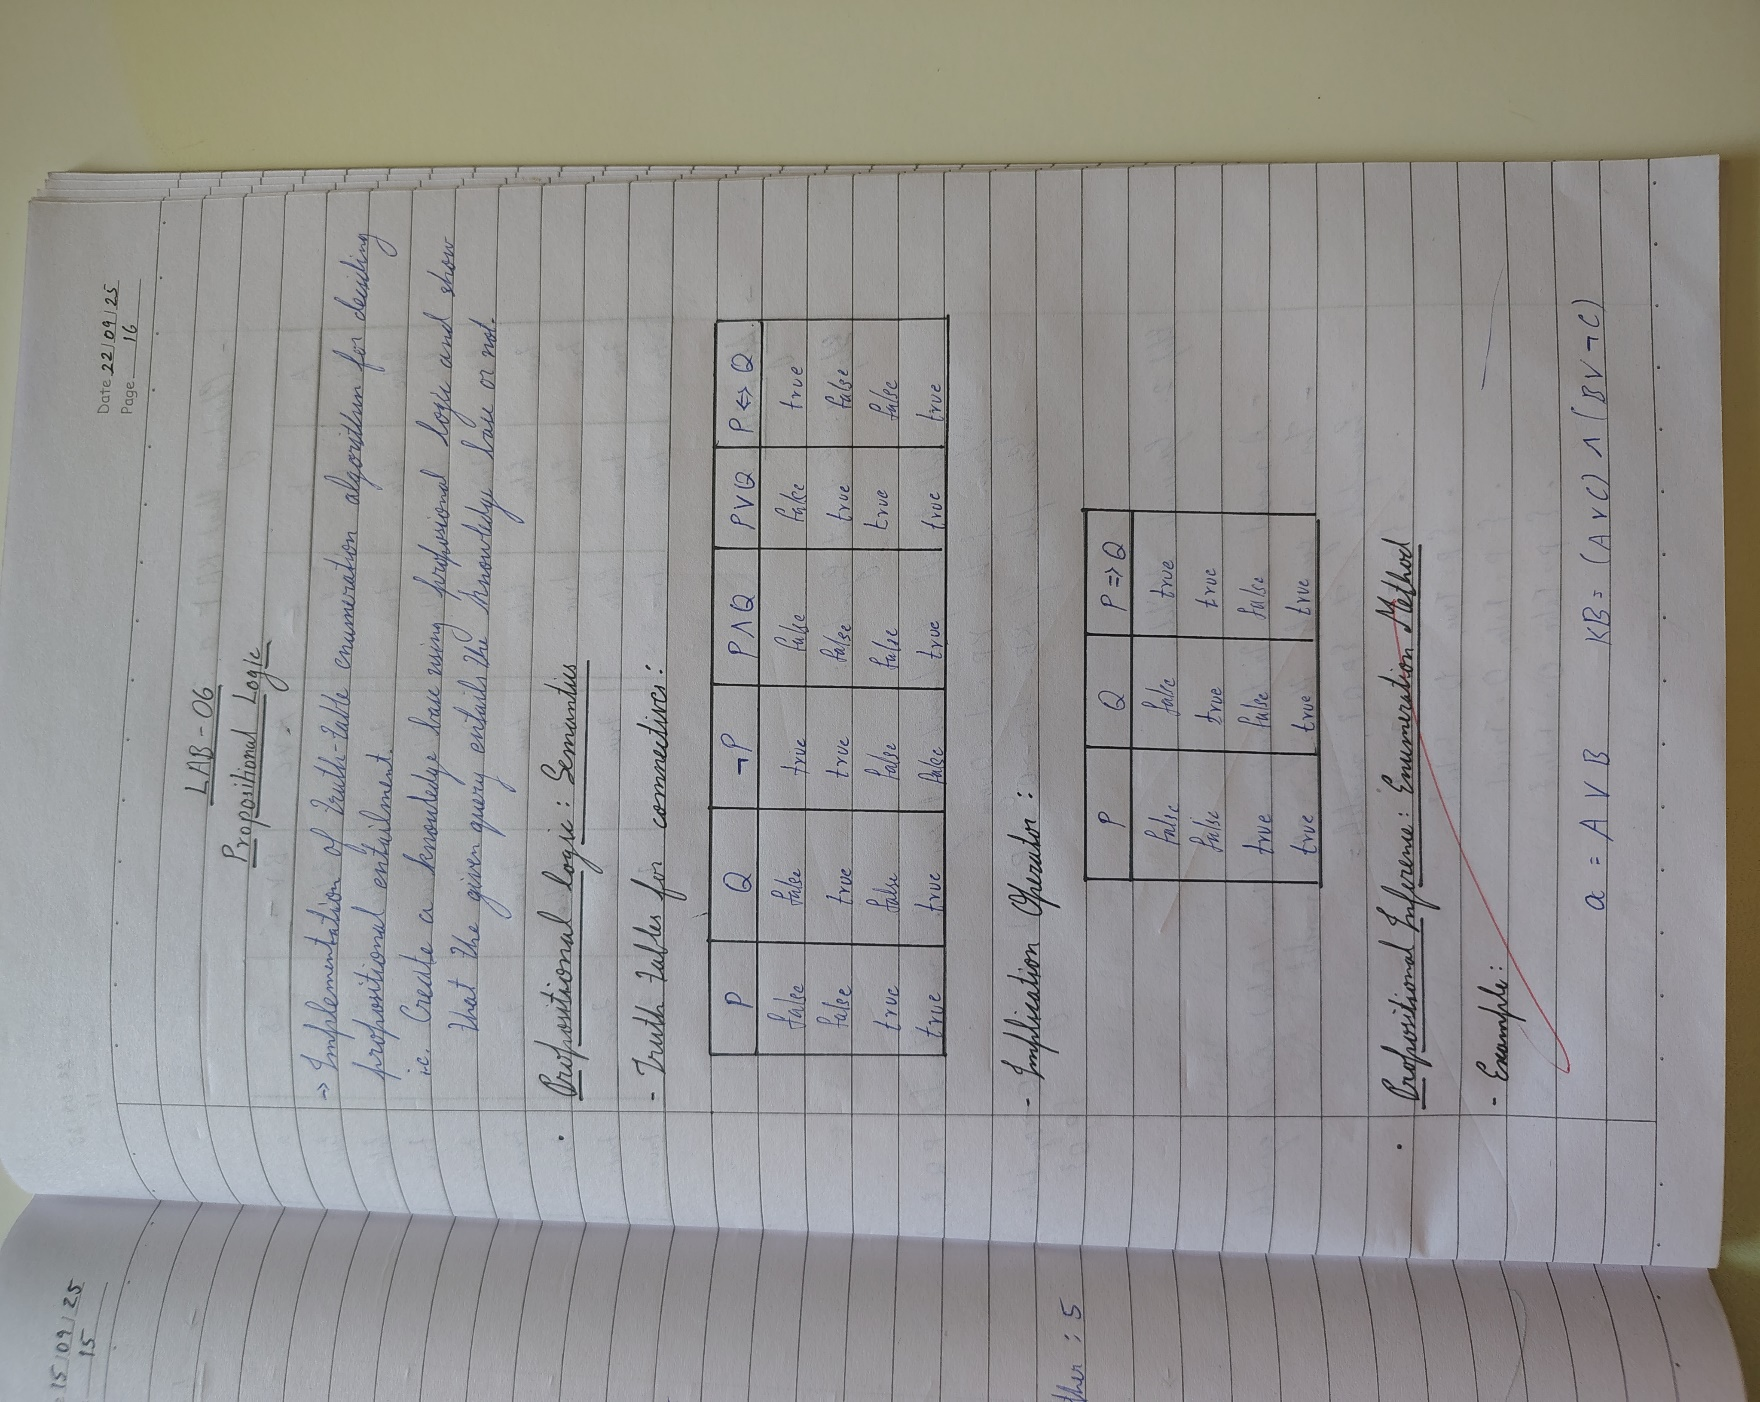 Date 22/09/25
Page 16
LAB-06
Propositional Logic
→ Implementation of truth-table enumeration algorithm for deciding
propositional entailment.
i.e. Create a knowledge base using propositional logic and show
that the given query entails the knowledge base or not.
· Propositional logic: Semantics
- Truth tables for connectives:
P Q ¬P P∧Q P∨Q P⇔Q
false false true false false true
false true true false true false
true false false false true false
true true false true true true
- Implication Operator:
P Q P⇒Q
false false true
false true true
true false false
true true true
· Propositional Inference: Enumeration Method
- Example:
α = A∨B KB = (A∨C) ∧ (B∨¬C)
15/09/25
15
ther : 5